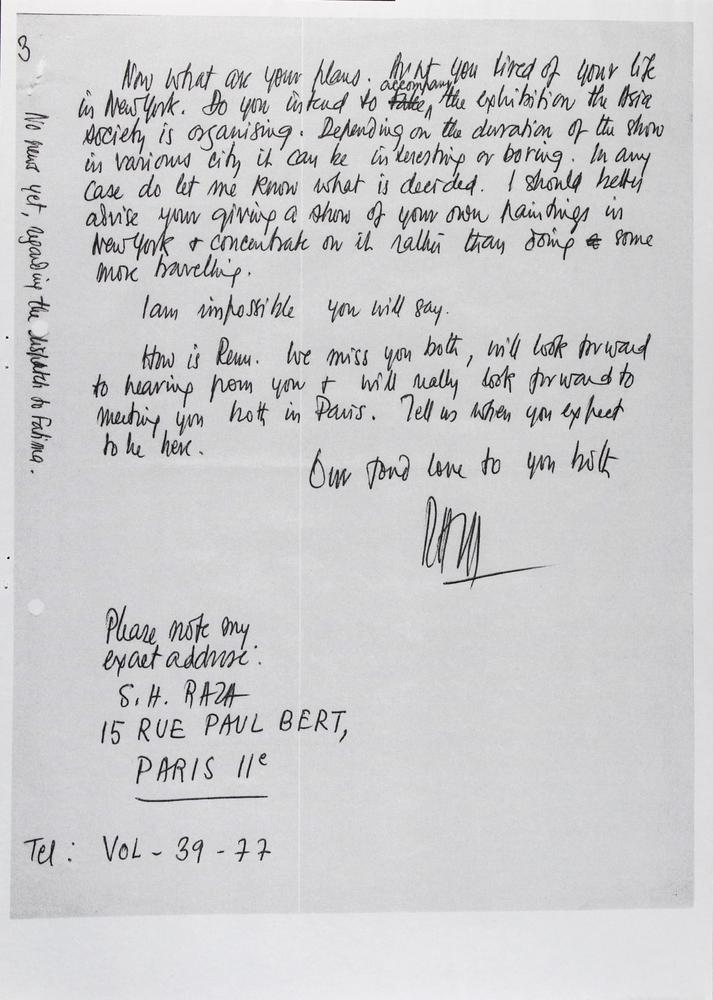 3
Now what are your plans. Ar'nt you tired of your life
in New York. Do you intend to take accompany the exhibition the Asia
Society is organising. Depending on the duration of the show
in various city it can be interesting or boring. In any
case do let me know what is decided. I should better
advise your giving a show of your own paintings in
New York & concentrate on it rather than doing some
more travelling.
I am impossible you will say.
How is Renu. We miss you both, will look forward
to hearing from you & will really look forward to
meeting you both in Paris. Tell us when you expect
to be here.
Our fond love to you both
RAZA
Please note my
exact address:
S. H. RAZA
15 RUE PAUL BERT,
PARIS 11e
Tel: VOL - 39 - 77
No news yet, regarding the dispatch to Fatima.